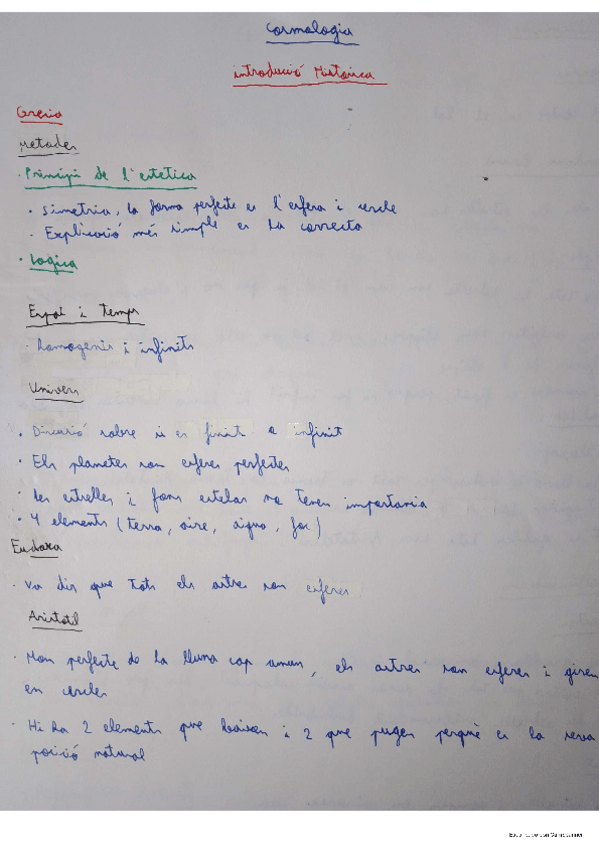 Cosmologia
introducció Històrica
Grecia
Metodes
· Principi de l'estetica
· Simetria, la forma perfecte es l'esfera i cercle
· Explicació més simple es la correcta
· Logica
Espai i Temps
· Homogenis i infinits
Univers
· Discusió sobre si es finit o infinit
· Els planetes son esferes perfectes
· Les estrelles i fons estelar no tenen importancia
· 4 elements (terra, aire, aigua, foc)
Eudoxo
· Va dir que tots els astres son esferes
Aristotil
· Mon perfecte de la lluna cap amun, els astres son esferes i giren
en cercles
· Hi ha 2 elements que baixen i 2 que pugen perquè es la seva
posició natural